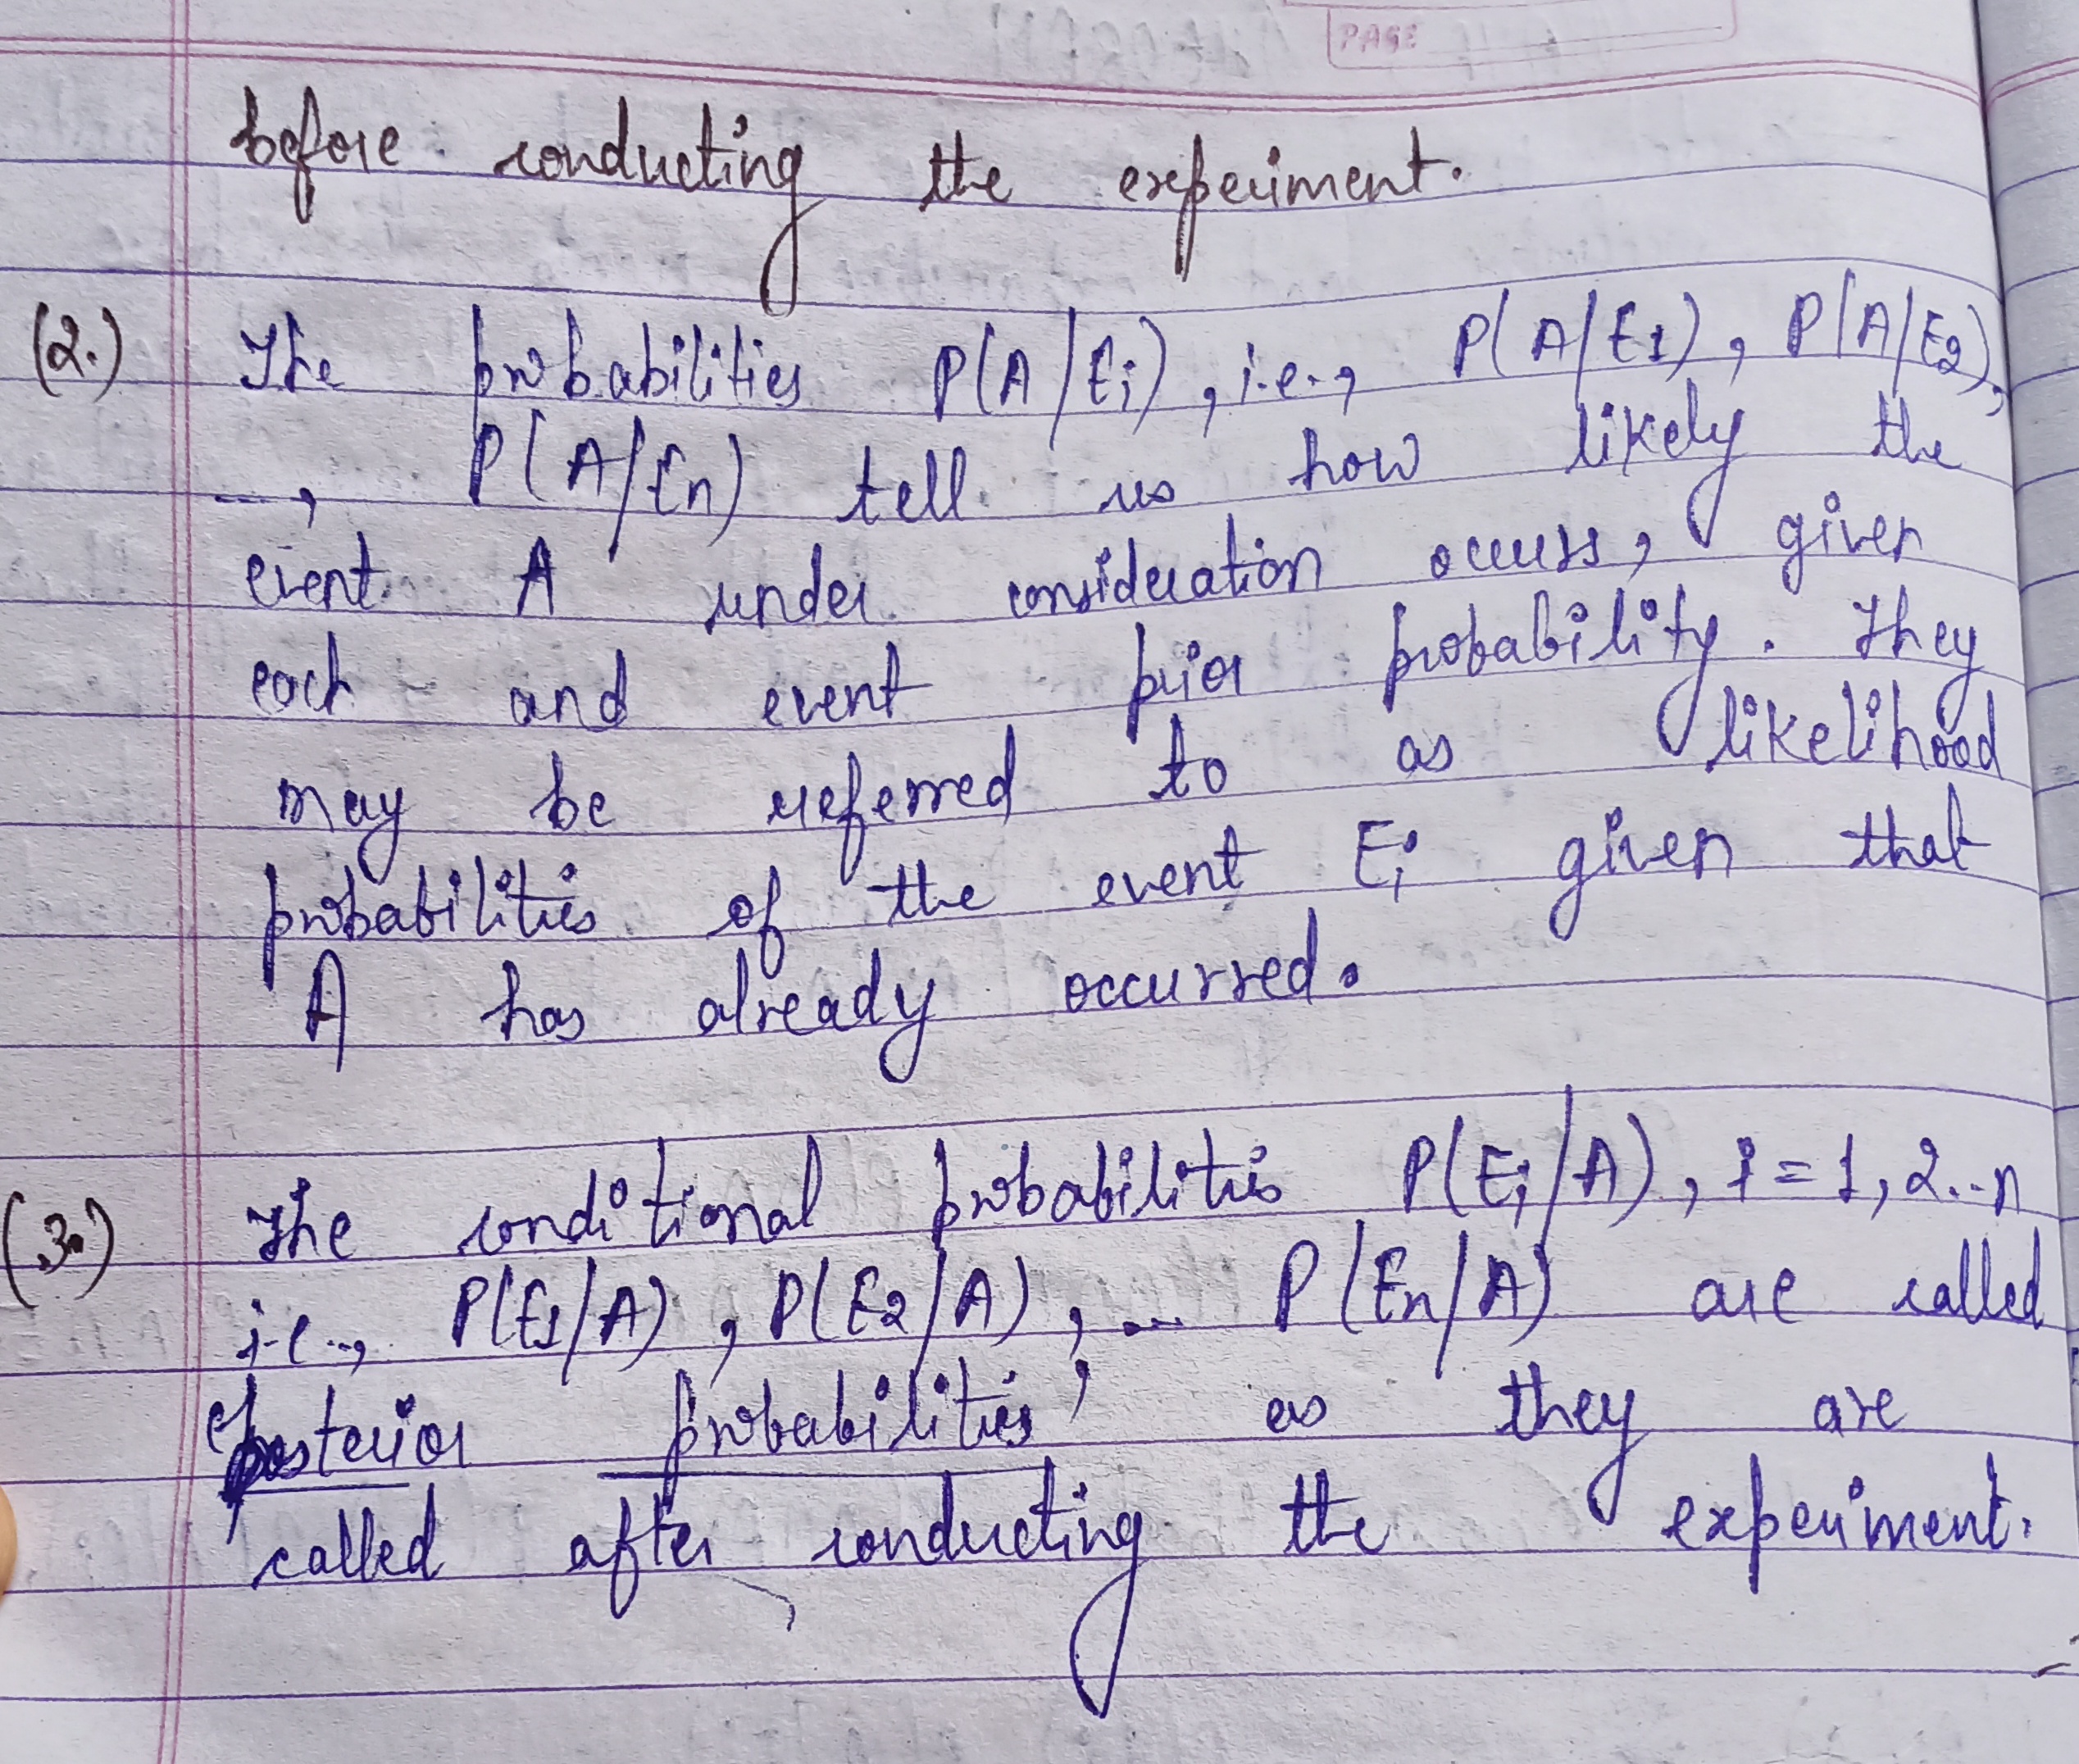 PAGE
before conducting the experiment.
(2.) The probabilities P(A/Ei), i.e., P(A/E1), P(A/E2),
..., P(A/En) tell us how likely the
event A under consideration occurs, given
each and event prior probability. They
may be referred to as likelihood
probabilities of the event Ei given that
A has already occurred.
(3.) The conditional probabilities P(Ei/A), i = 1, 2...n
i.e., P(E1/A), P(E2/A), ... P(En/A) are called
'posterior probabilities' as they are
called after conducting the experiment.